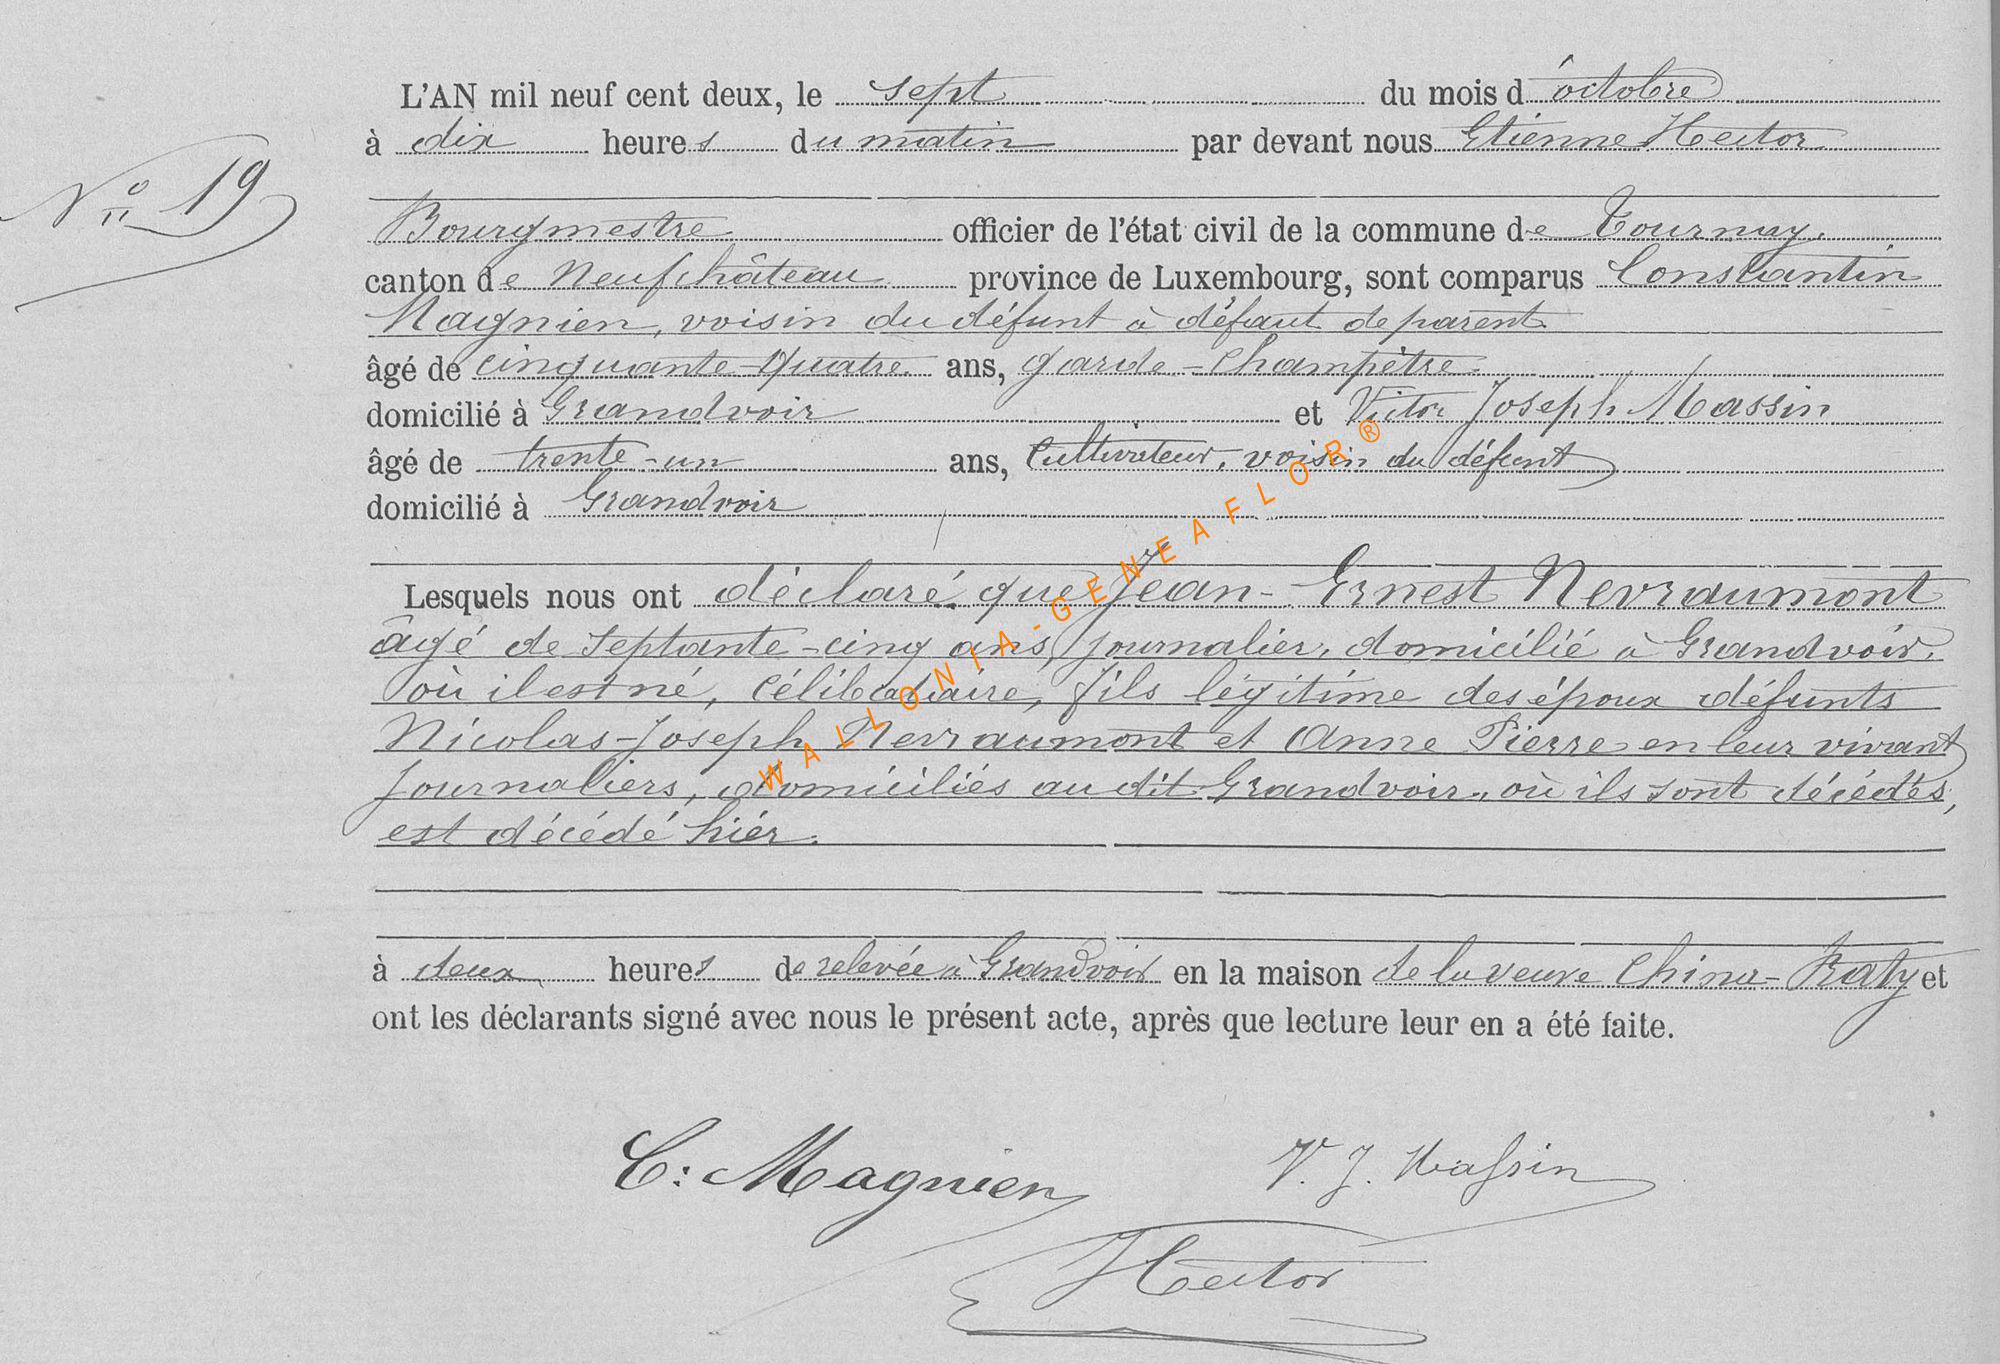 L'AN mil neuf cent deux, le sept du mois d'octobre
à dix heures du matin par devant nous Etienne Hector
N° 19
Bourgmestre officier de l'état civil de la commune de Tournay,
canton de Neufchâteau province de Luxembourg, sont comparus Constantin
Magnien, voisin du défunt à défaut de parent
âgé de cinquante-quatre ans, garde-champêtre
domicilié à Grandvoir et Victor Joseph Massin
âgé de trente-un ans, Cultivateur, voisin du défunt
domicilié à Grandvoir
Lesquels nous ont déclaré que Jean-Ernest Nevraumont
âgé de septante-cinq ans, journalier, domicilié à Grandvoir,
où il est né, célibataire, fils légitime des époux défunts
Nicolas-Joseph Nevraumont et Anne Pierre en leur vivant
journaliers, domiciliés au dit Grandvoir, où ils sont décédés,
est décédé hier.
à deux heures de relevée à Grandvoir en la maison de la veuve China-Raty et
ont les déclarants signé avec nous le présent acte, après que lecture leur en a été faite.
C: Magnien
V. J. Massin
Hector
WALLONIA-GENEAFLOR®